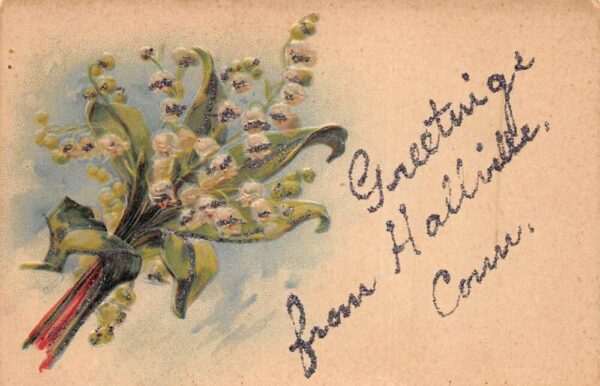 Greetings
from Hallville,
Conn.